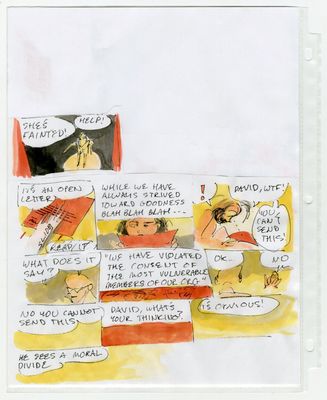 SHE'S
FAINTED!
HELP!
IT'S AN OPEN
LETTER
READ IT
WHILE WE HAVE
ALWAYS STRIVED
TOWARD GOODNESS
BLAH BLAH BLAH---
!
DAVID, WTF!
YOU
CAN'T
SEND
THIS!
WHAT DOES IT
SAY?
"WE HAVE VIOLATED
THE CONSENT OF
THE MOST VULNERABLE
MEMBERS OF OUR ORG."
OK..
NO
NO YOU CANNOT
SEND THIS
DAVID, WHAT'S
YOUR THINKING?
IS OBVIOUS!
HE SEES A MORAL
DIVIDE